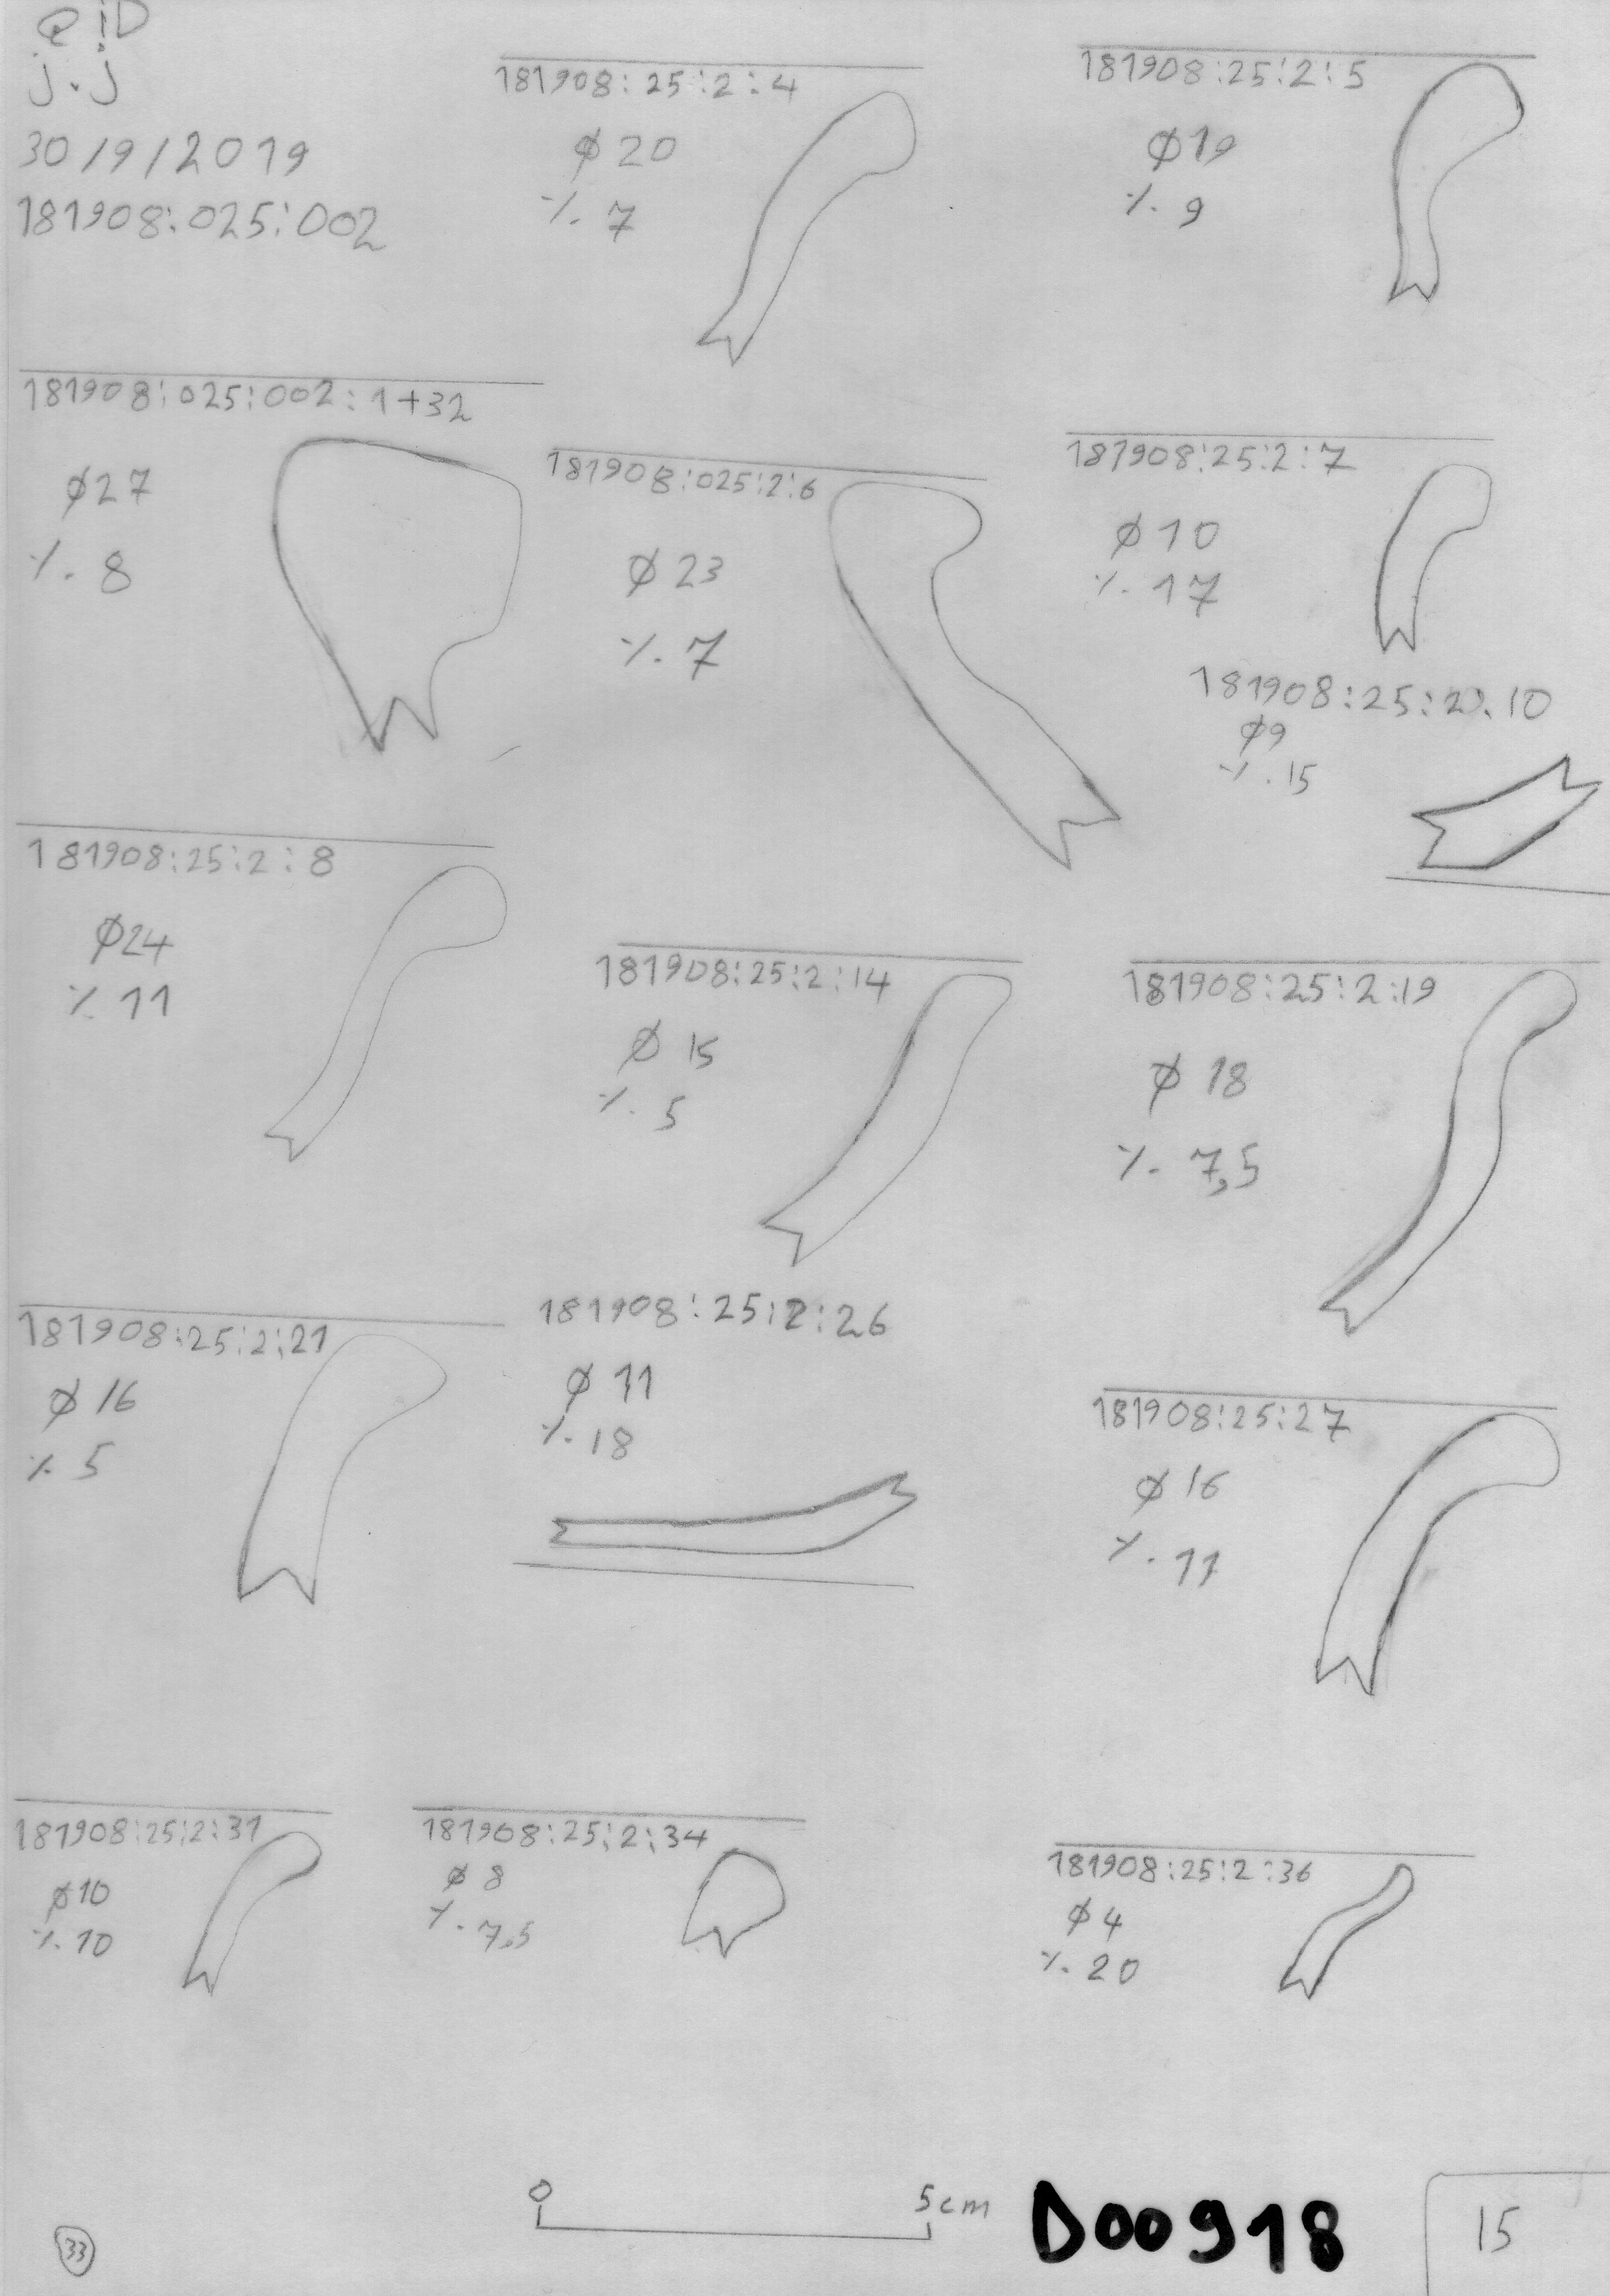 QiD
j.j
30/9/2019
181908:025:002
181908:25:2:4
ø 20
٪. 7
181908:25:2:5
ø 19
٪. 9
181908:025:002:1+32
ø 27
٪. 8
181908:025:2:6
ø 23
٪. 7
181908:25:2:7
ø 10
٪. 17
181908:25:2:10
ø 9
٪. 15
181908:25:2:8
ø 24
٪. 11
181908:25:2:14
ø 15
٪. 5
181908:25:2:19
ø 18
٪. 7,5
181908:25:2:21
ø 16
٪. 5
181908:25:2:26
ø 11
٪. 18
181908:25:27
ø 16
٪. 11
181908:25:2:31
ø 10
٪. 10
181908:25:2:34
ø 8
٪. 7,5
181908:25:2:36
ø 4
٪. 20
0 5cm
D00918
15
33